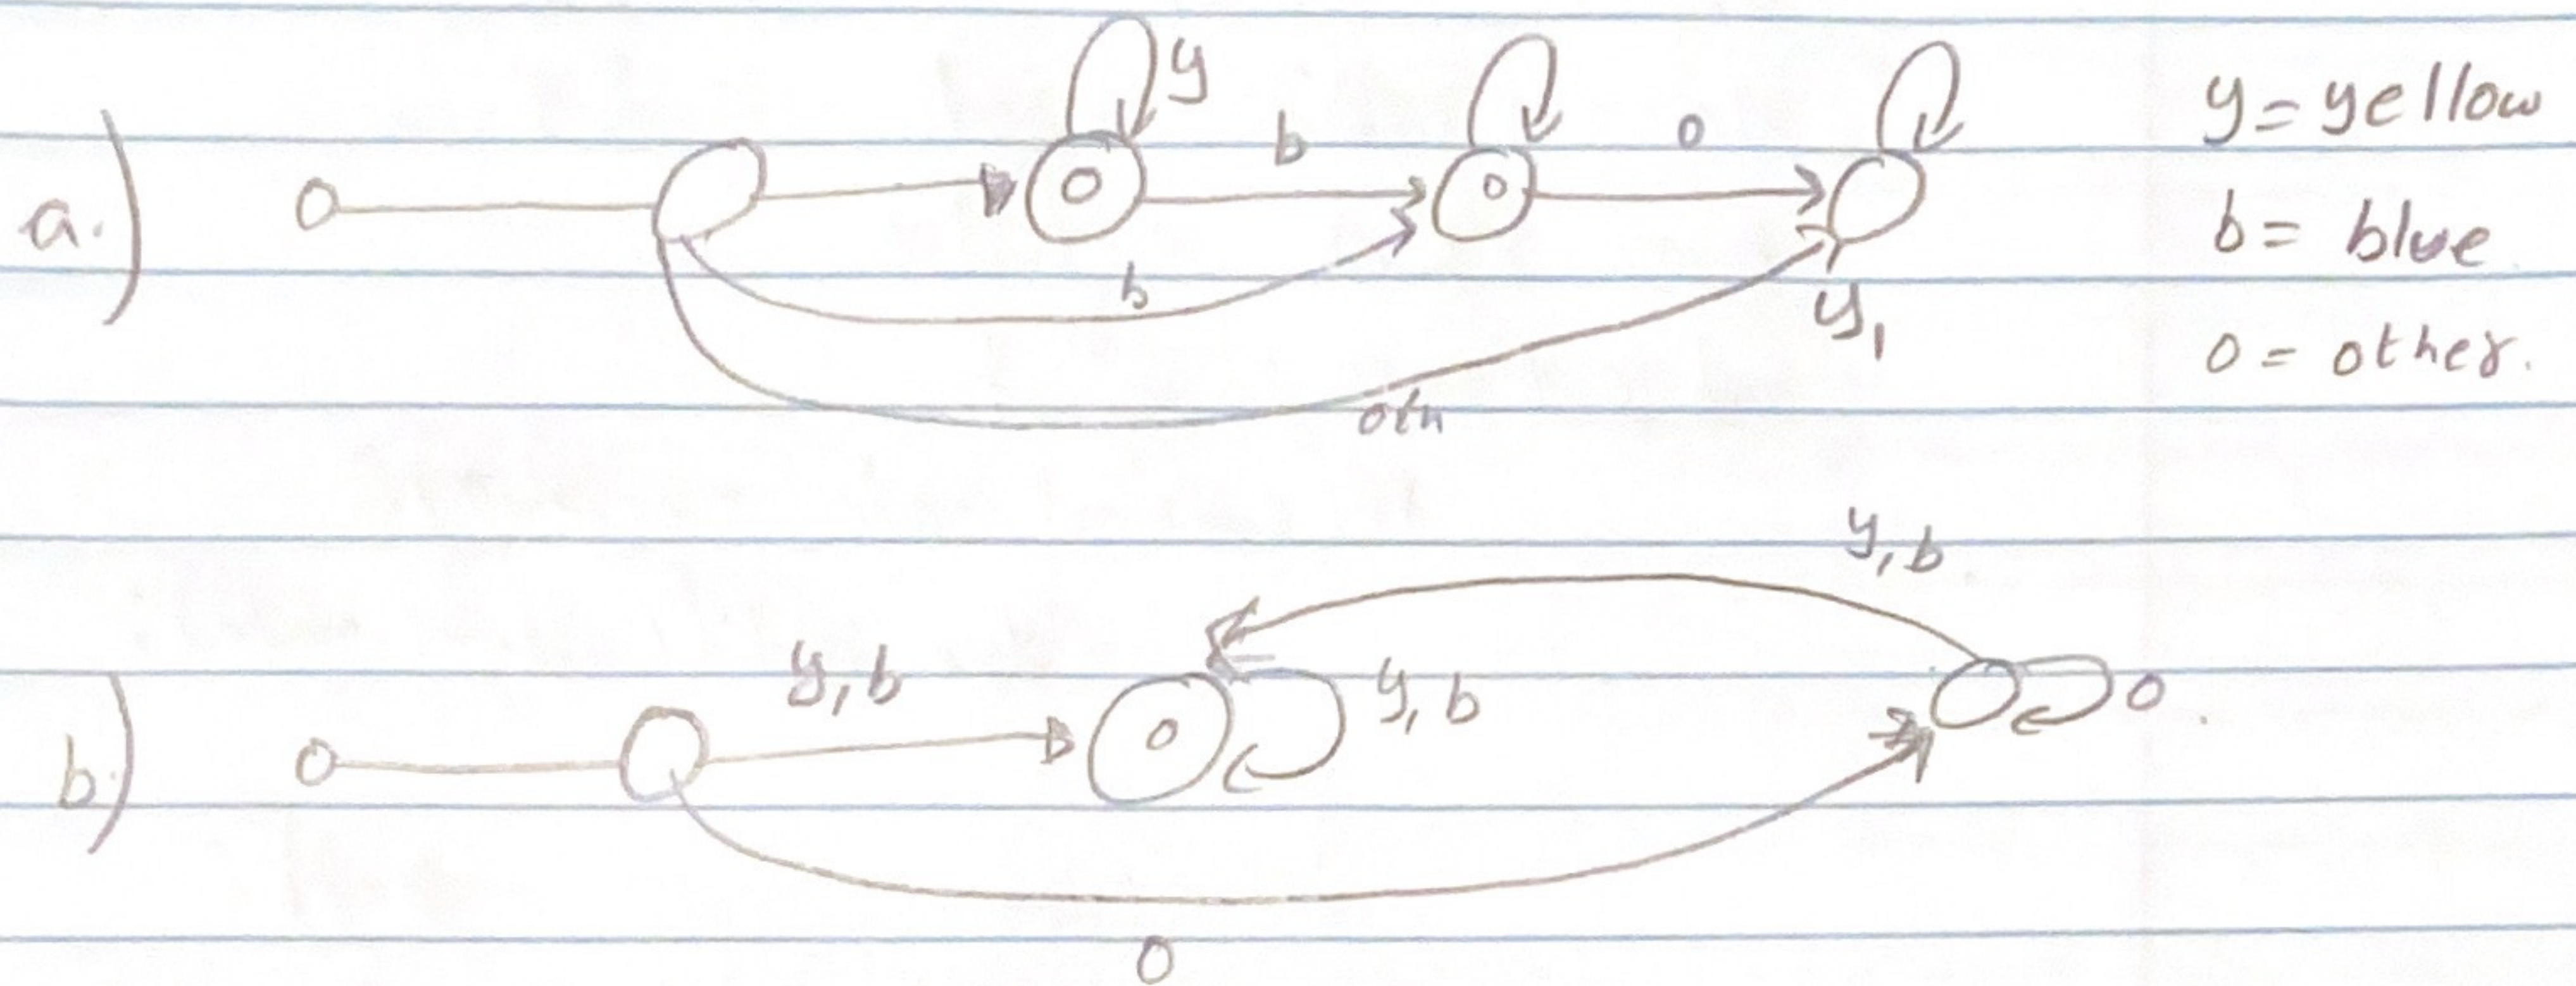 a.)
y
b
o
b
oth
y,
y = yellow
b = blue
o = other.
b.)
y, b
y, b
y, b
o
o